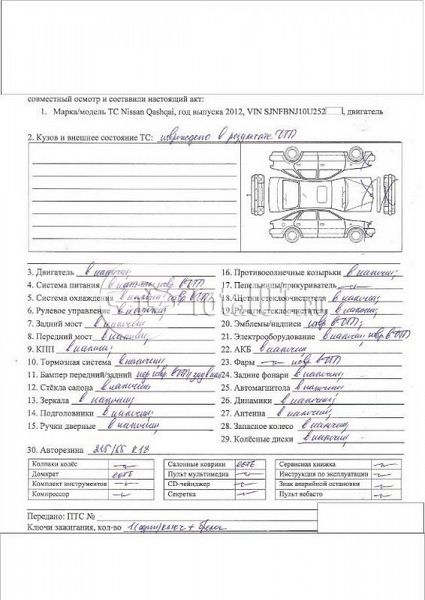 совместный осмотр и составили настоящий акт:
1. Марка/модель ТС Nissan Qashqai, год выпуска 2012, VIN SJNFBNJ10U252 , двигатель
2. Кузов и внешнее состояние ТС: повреждено в результате ДТП
3. Двигатель в наличии
4. Система питания в повр. в ДТП
5. Система охлаждения в повр в ДТП
6. Рулевое управление в наличии
7. Задний мост в наличии
8. Передний мост в наличии
9. КПП в наличии
10. Тормозная система в наличии
11. Бампер передний/задний повр в ДТП
12. Стёкла салона в наличии
13. Зеркала в наличии
14. Подголовники в наличии
15. Ручки дверные в наличии
16. Противосолнечные козырьки в наличии
17. Пепельницы/прикуриватель
18. Щетки стеклоочистителя в наличии
19. Рычаги стеклоочистителя в наличии
20. Эмблемы/надписи повр в ДТП
21. Электрооборудование в наличии повр в ДТП
22. АКБ в наличии
23. Фары повр в ДТП
24. Задние фонари в наличии
25. Автомагнитола в наличии
26. Динамики в наличии
27. Антенна в наличии
28. Запасное колесо в наличии
29. Колёсные диски в наличии
30. Авторезина 215/65 R
Колпаки колёс Салонные коврики есть Сервисная книжка
Домкрат есть Пульт мультимедиа Инструкция по эксплуатации
Комплект инструментов CD-чейнджер Знак аварийной остановки
Компрессор Секретка Пульт вебасто
Передано: ПТС №
Ключи зажигания, кол-во 1 (один) ключ + брелок